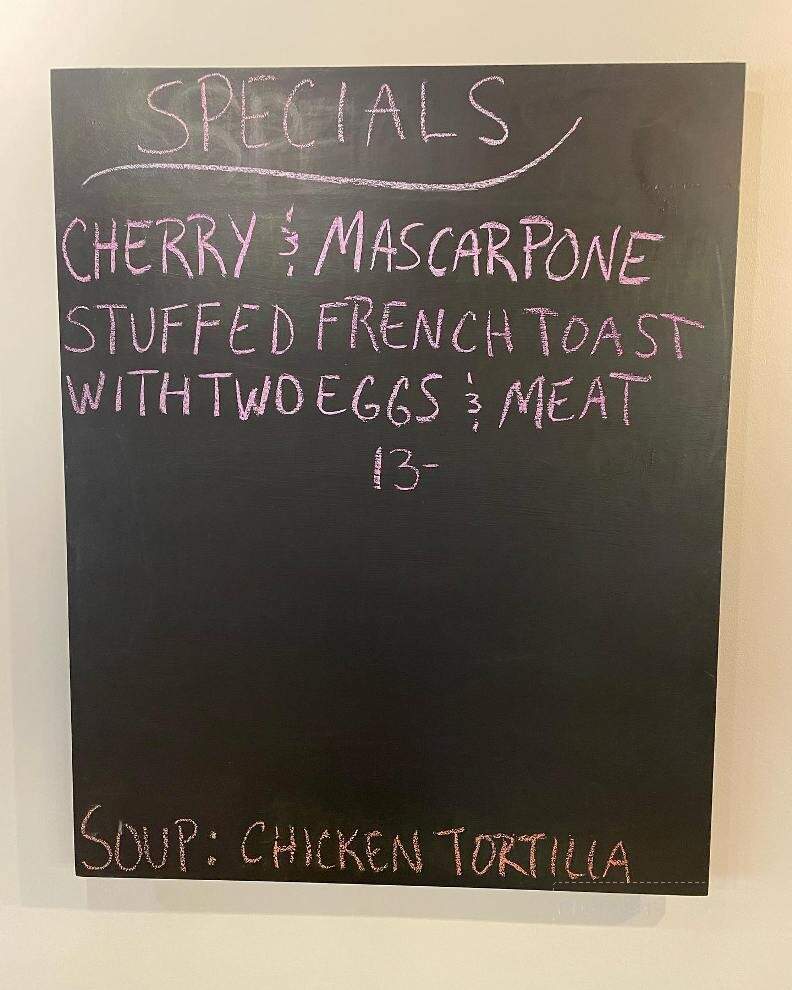 SPECIALS
CHERRY & MASCARPONE
STUFFED FRENCH TOAST
WITH TWO EGGS & MEAT
13-
SOUP: CHICKEN TORTILLA